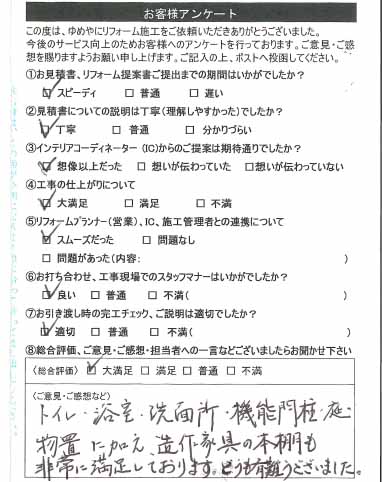 お客様アンケート
この度は、ゆめやにリフォーム施工をご依頼いただきありがとうございました。
今後のサービス向上のためお客様へのアンケートを行っております。ご意見・ご感
想を賜りますようお願い申し上げます。ご記入の上、ポストへ投函してください。
①お見積書、リフォーム提案書ご提出までの期間はいかがでしたか?
☑ スピーディ □ 普通 □ 遅い
②見積書についての説明は丁寧(理解しやすかった)でしたか?
☑ 丁寧 □ 普通 □ 分かりづらい
③インテリアコーディネーター(IC)からのご提案は期待通りでしたか?
☑ 想像以上だった □ 想いが伝わっていた □想いが伝わっていない
④工事の仕上がりについて
☑ 大満足 □ 満足 □ 不満
⑤リフォームプランナー(営業)、IC、施工管理者との連携について
☑ スムーズだった □ 問題なし
□ 問題があった(内容: )
⑥お打ち合わせ、工事現場でのスタッフマナーはいかがでしたか?
☑ 良い □ 普通 □ 不満( )
⑦お引き渡し時の完工チェック、ご説明は適切でしたか?
☑ 適切 □ 普通 □ 不満( )
⑧総合評価、ご意見・ご感想・担当者への一言などございましたらお聞かせ下さい
(総合評価) ☑ 大満足 □ 満足 □ 普通 □ 不満
(ご意見・ご感想など)
トイレ・浴室・洗面所・機能門柱・庭・
物置に加え、造作家具の本棚も
非常に満足しております。どうも有難うございました。